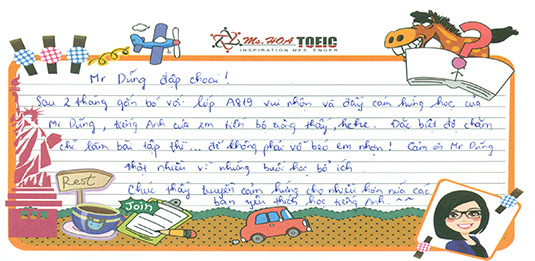 Ms.HOA TOEIC
INSPIRATION MFS. ENGER
Mr Dũng đập choai!
Sau 2 tháng gắn bó với lớp A819 vui nhộn và đầy cảm hứng học của
Mr Dũng, tiếng Anh của em tiến bộ trông thấy, hehe. Đặc biệt độ chăm
chỉ làm bài tập thì... để không phải vỗ béo em nhộn! Cảm ơn Mr Dũng
thật nhiều vì những buổi học bổ ích.
Chúc thầy truyền cảm hứng cho nhiều hơn nữa các
bạn yêu thích học tiếng Anh. ~~
Rest
Join